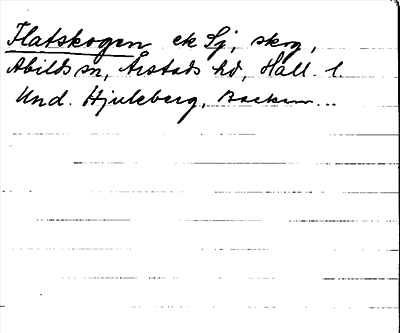 Flatskogen ek Lj, skog,
Abilds sn, Årstads hd, Hall. l.
Und. Hjuleberg,